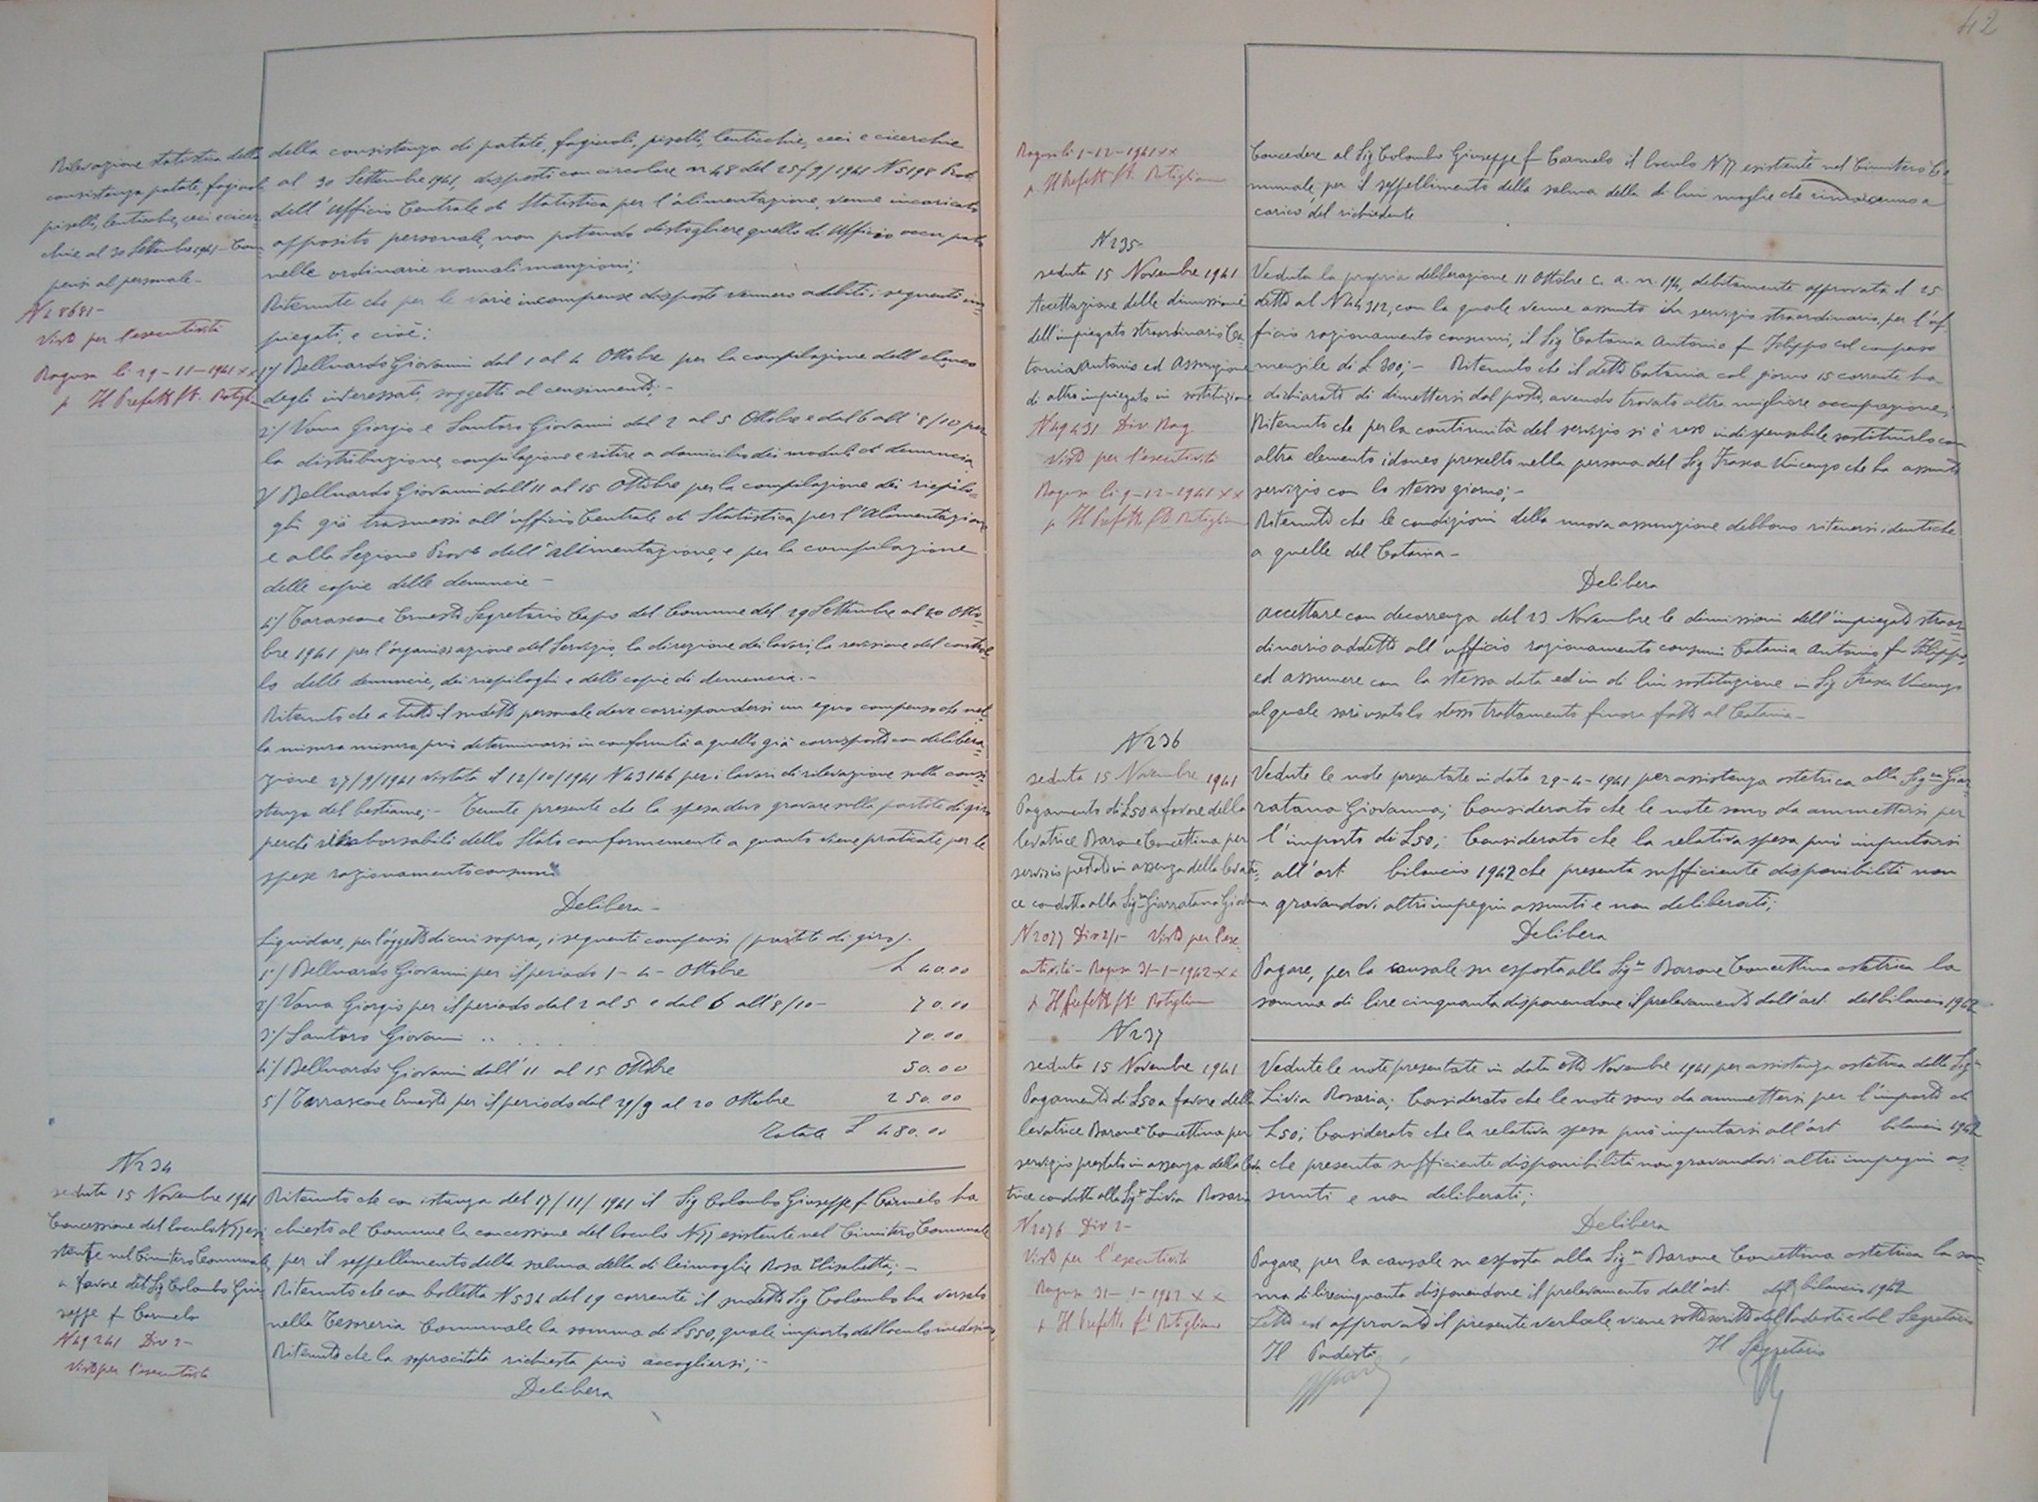 Rilevazione statistica della
consistenza patate, fagioli
piselli, lenticchie, ceci e cicer-
chie al 30 Settembre 1941 - Com-
pensi al personale -
N 28681 -
Visto per l'esecutività
Ragusa li 29-11-1941 XX
p Il Prefetto
della consistenza di patate, fagiuoli, piselli, lenticchie, ceci e cicerchie
al 30 Settembre 1941, disposti con circolare n. 48 del 25/9/1941 N 5198 Prot
dell'Ufficio Centrale di Statistica per l'alimentazione, venne incaricato
apposito personale, non potendo distogliere quello di Ufficio occupato
nelle ordinarie normali mansioni;
Ritenuto che per le varie incompense disposte vennero adibiti i seguenti im-
piegati, e cioè:
1°/ Belluardo Giovanni dal 1 al 4 Ottobre per la compilazione dell'elenco
degli interessati, soggetti al censimento; -
2°/ Vona Giorgio e Santoro Giovanni dal 2 al 5 Ottobre e dal 6 all'8/10 per
la distribuzione, compilazione e ritiro a domicilio dei moduli di denuncia
3/ Belluardo Giovanni dall'11 al 15 Ottobre per la compilazione dei riepilo-
ghi già trasmessi all'ufficio Centrale di Statistica per l'Alimentazione
e alla Sezione Prov.le dell'alimentazione, e per la compilazione
delle copie delle denuncie -
4°/ Tarascone Ernesto Segretario Capo del Comune del 29 Settembre al 20 Otto-
bre 1941 per l'organizzazione del Servizio, la direzione dei lavori, la revisione del control-
lo delle denuncie, dei riepiloghi e delle copie di denuncia. -
Ritenuto che a tutto il sudetto personale deve corrispondersi un equo compenso che nel
la misura misura può determinarsi in conformità a quello già corrisposto con delibera-
zione 27/9/1941 vistata il 12/10/1941 N 43146 per i lavori di rilevazione sulla consi
stenza del bestiame; - Tenute presente che la spesa deve gravare sulla partite di giro
perchè rimborsabili dello Stato conformemente a quanto viene praticato per le
spese razionamento consumi
Delibera -
Liquidare, per l'oggetto di cui sopra, i seguenti compensi (partite di giro).
1°/ Belluardo Giovanni per il periodo 1 - 4 - Ottobre £ 40.00
2/ Vona Giorgio per il periodo dal 2 al 5 e dal 6 all'8/10 - 70.00
3°/ Santoro Giovanni .. . . . . 70.00
4°/ Belluardo Giovanni dall'11 al 15 Ottobre 50.00
5/ Terrascone Ernesto per il periodo dal 29/9 al 20 Ottobre 250.00
Totale £ 480.00
N 234
seduta 15 Novembre 1941
Concessione del loculo N 77 esi
stente nel Cimitero Comunale
a favore del Sig Colombo Giu-
seppe fu Carmelo
N 49241 Div 2 -
Visto per l'esecutività
Ritenuto che con istanza del 17/11/1941 il Sig Colombo Giuseppe fu Carmelo ha
chiesto al Comune la concessione del loculo N 77 esistente nel Cimitero Comunale
per il seppellimento della salma della di lei moglie Rosa Elisabetta; -
Ritenuto che con bolletta N 534 del 19 corrente il sudetto Sig Colombo ha versato
nella Tesoreria Comunale la somma di £ 550, quale importo del loculo medesimo,
Ritenuto che la sopracitata richiesta può accogliersi; -
Delibera
42
Ragusa li 1-12-1941 XX
p Il Prefetto
Concedere al Sig Colombo Giuseppe fu Carmelo il loculo N 77 esistente nel Cimitero Co-
munale, per il seppellimento della salma della di lui moglie che
carico del richiedente
N 235 -
seduta 15 Novembre 1941
Accettazione delle dimissioni
dell'impiegato straordinario Ca-
tania Antonio ed Assunzione
di altro impiegato in sostituzione
N 49431 Div. Rag
Visto per l'esecutività
Ragusa li 9-12-1941 XX
p Il Prefetto
Veduta la propria deliberazione 11 Ottobre c. a. n. 194, debitamente approvata il 25
detto al N 44312, con la quale venne assunto in servizio straordinario, per l'uf-
ficio razionamento consumi, il Sig Catania Antonio fu Filippo col compenso
mensile di £ 300; - Ritenuto che il detto Catania col giorno 15 corrente ha
dichiarato di dimettersi dal posto, avendo trovato altra migliore occupazione;
Ritenuto che per la continuità del servizio si è reso indispensabile sostituirlo con
altro elemento idoneo prescelto nella persona del Sig Frasca Vincenzo che ha assunto
servizio con lo stesso giorno; -
Ritenuto che le condizioni della nuova assunzione debbono ritenersi identiche
a quelle del Catania -
Delibera
accettare con decorrenza del 23 Novembre le dimissioni dell'impiegato straor-
dinario addetto all'ufficio razionamento consumi Catania Antonio fu Filippo,
ed assumere con la stessa data ed in di lui sostituzione in Sig Frasca Vincenzo
al quale sarà usato lo stesso trattamento finora fatto al Catania -
N 236
seduta 15 Novembre 1941
Pagamento di £ 50 a favore della
levatrice Barone Concettina per
servizio prestato in assenza della levatri-
ce condotta alla Sig.ra Giarratana Giovanna
N 2077 Div 2/1 - Visto per l'ese-
cutività - Ragusa 31-1-1942 XX
p Il Prefetto
Vedute le note presentate in data 29-4-1941 per assistenza ostetrica alla Sig.ra Giar-
ratana Giovanna; Considerato che le note sono da ammettersi per
l'importo di £ 50; Considerato che la relativa spesa può imputarsi
all'art bilancio 1942 che presenta sufficiente disponibilità non
gravandovi altri impegni assunti e non deliberati;
Delibera
Pagare, per la causale su esposta alla Sig.ra Barone Concettina ostetrica la
somma di lire cinquanta disponendone il prelevamento dall'art. del bilancio 1942
N 237
seduta 15 Novembre 1941
Pagamento di £ 50 a favore della
levatrice Barone Concettina per
servizio prestato in assenza della leva
trice condotta alla Sig.ra Livia Rosaria
N 2076 Div 2 -
Visto per l'esecutività
Ragusa 31-1-1942 XX
p Il Prefetto
Vedute le note presentate in data otto Novembre 1941 per assistenza ostetrica della Sig.ra
Livia Rosaria; Considerato che le note sono da ammettersi per l'importo di
£ 50; Considerato che la relativa spesa può imputarsi all'art bilancio 1942
che presenta sufficiente disponibilità non gravandovi altri impegni as-
sunti e non deliberati;
Delibera
Pagare, per la causale su esposta alla Sig.ra Barone Concettina ostetrica la som-
ma di lire cinquanta disponendone il prelevamento dall'art. del bilancio 1942
Letto ed approvato il presente verbale, viene sottoscritto dal Podestà e dal Segretario
Il Podestà Il Segretario